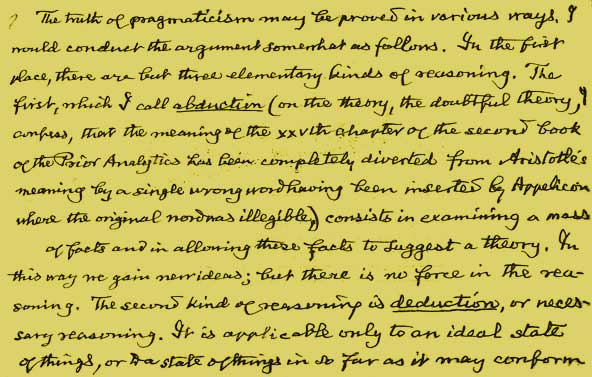 The truth of pragmaticism may be proved in various ways. I
would conduct the argument somewhat as follows. In the first
place, there are but three elementary kinds of reasoning. The
first, which I call abduction (on the theory, the doubtful theory, I
confess, that the meaning of the XXVth chapter of the second book
of the Prior Analytics has been completely diverted from Aristotle's
meaning by a single wrong word having been inserted by Appelicon
where the original word was illegible,) consists in examining a mass
of facts and in allowing these facts to suggest a theory. In
this way we gain new ideas; but there is no force in the rea-
soning. The second kind of reasoning is deduction, or neces-
sary reasoning. It is applicable only to an ideal state
of things, or to a state of things in so far as it may conform